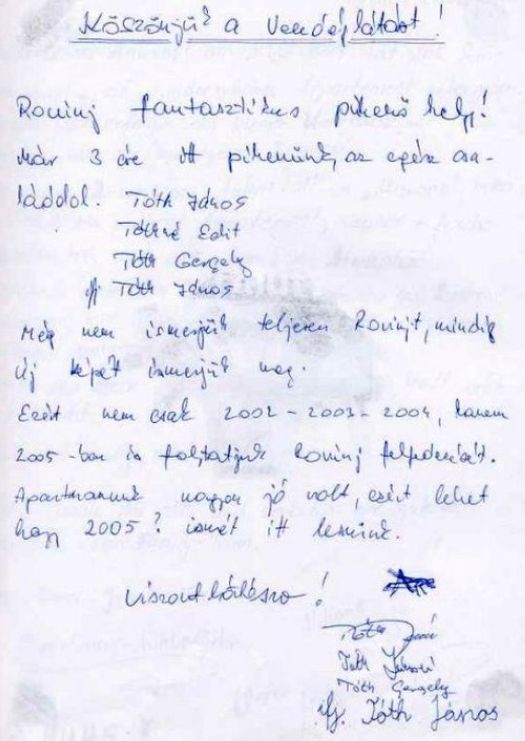 Köszönjük a vendéglátást!
Rovinj fantasztikus pihenő hely!
Már 3 éve itt pihenünk, az egész csa-
láddal. Tóth János
Tóthné Edit
Tóth Gergely
ifj Tóth János
Még nem ismerjük teljesen Rovinjt, mindig
új képét ismerjük meg.
Ezért nem csak 2002 - 2003 - 2004, hanem
2005-ban is folytatjuk Rovinj felfedezését.
Apartmanunk nagyon jó volt, ezért lehet
hogy 2005? ismét itt leszünk.
Viszontlátásra!
Tóth
Tóth
Tóth Gergely
ifj. Tóth János